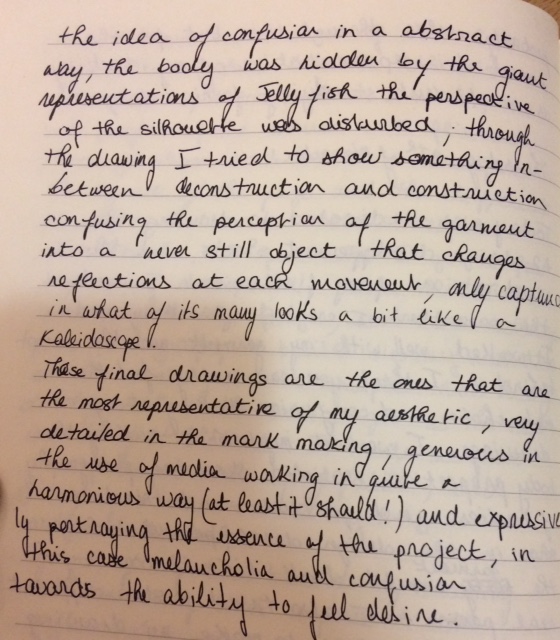 the idea of confusion in a abstract
way, the body was hidden by the giant
representations of Jelly fish the perspective
of the silhouette was disturbed, through
the drawing I tried to show something in-
between deconstruction and construction
confusing the perception of the garment
into a never still object that changes
reflections at each movement, only
in what of its many looks a bit like a
Kaleidoscope.
These final drawings are the ones that are
the most representative of my aesthetic, very
detailed in the mark making, generous in
the use of media working in quite a
harmonious way (at least it should!) and expressive
ly portraying the essence of the project, in
this case melancholia and confusion
towards the ability to feel desire.